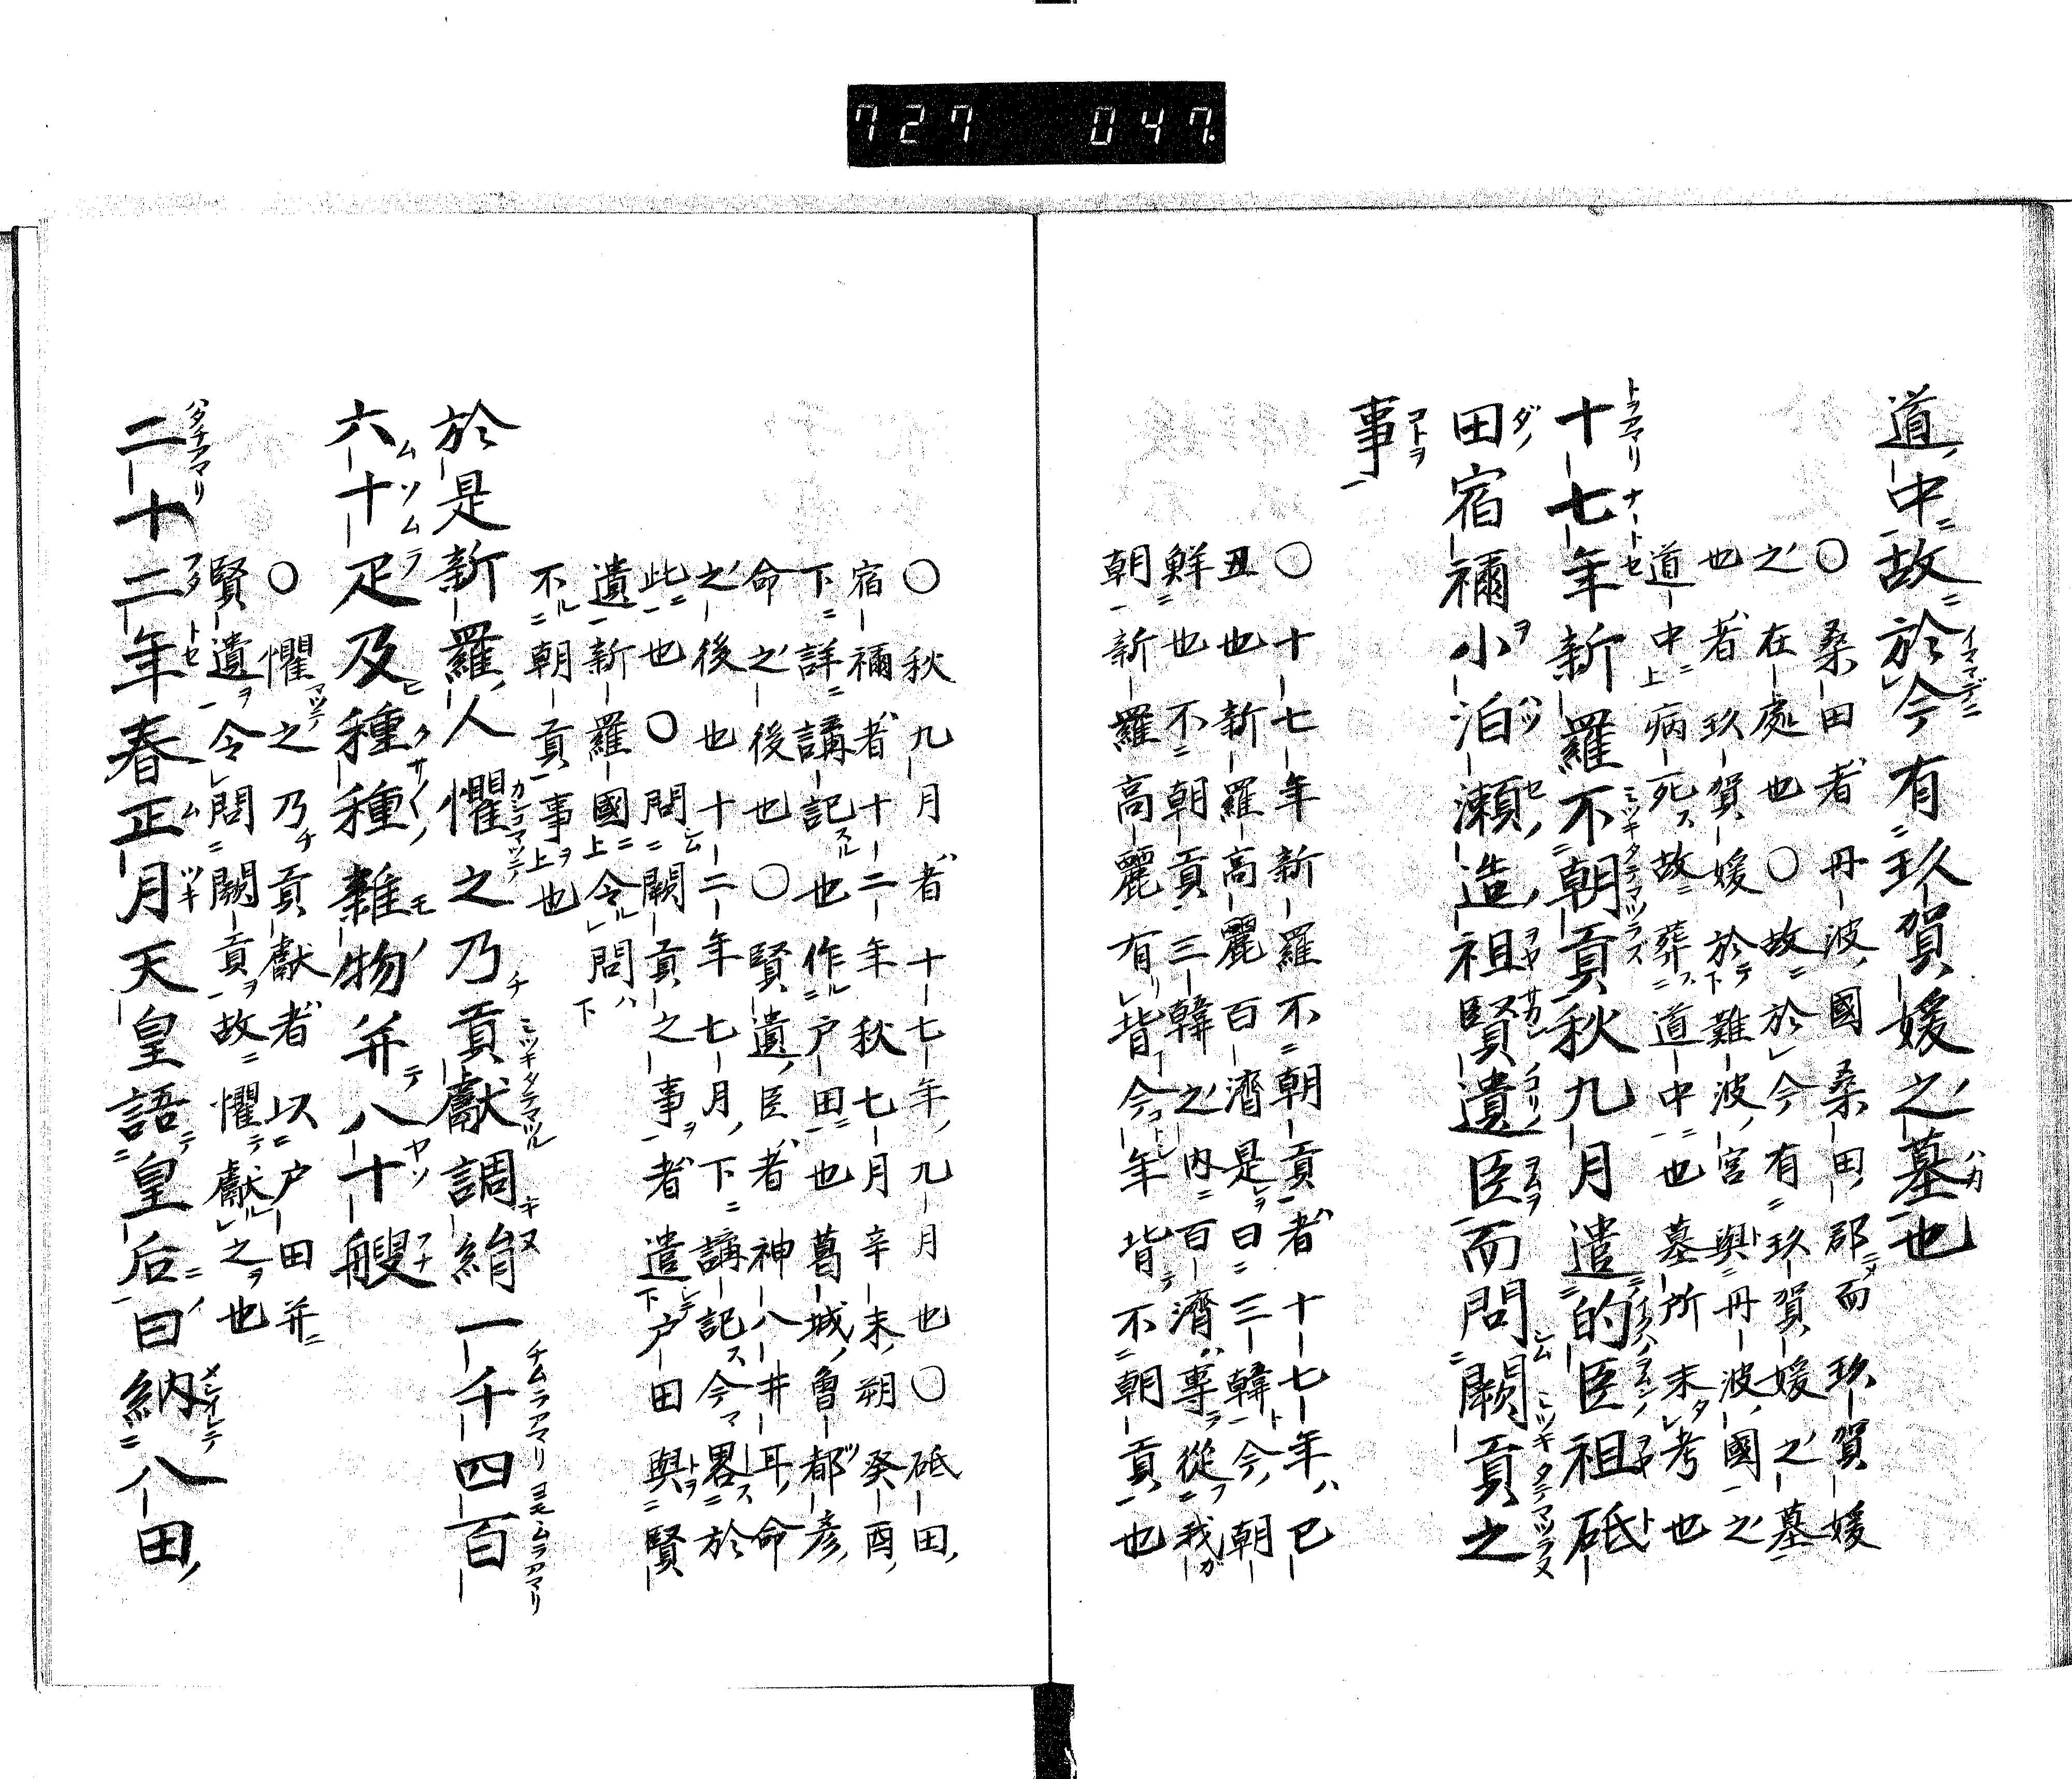 727 047
道中故於今有玖賀媛之墓也
〇桑田者丹波國桑田郡而玖賀媛
之在處也〇故於今有玖賀媛之墓
也者玖賀媛於難波宮與丹波國之
道中病死故葬道中也墓所未考也
十七年新羅不朝貢秋九月遣的臣祖砥
田宿禰小泊瀬造祖賢遺臣而問闕貢之
事
〇十七年新羅不朝貢者十七年八巳
丑也新羅高麗百濟是曰三韓今朝
鮮也不朝貢三韓之内百濟專從我
朝新羅高麗有背今年背不朝貢也
〇秋九月者十七年九月也〇砥田
宿禰者十二年秋七月辛未朔癸酉
下詳講記也作戸田也葛城曾都彦
命之後也〇賢遺臣者神八井耳命
之後也十二年七月下講記今畧於
此也〇問闕貢之事者遣戸田與賢
遺新羅國令問
不朝貢事也
於是新羅人懼之乃貢獻調絹一千四百
六十疋及種種雜物并八十艘
〇懼之乃貢獻者以戸田并
賢遺令問闕貢故懼獻之也
二十二年春正月天皇語皇后曰納八田